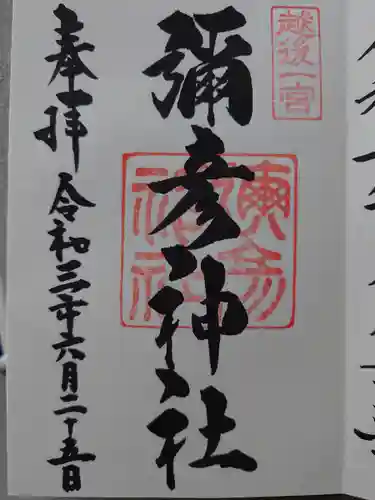 越後一宮
彌彦神社
奉拝
令和三年六月二十五日